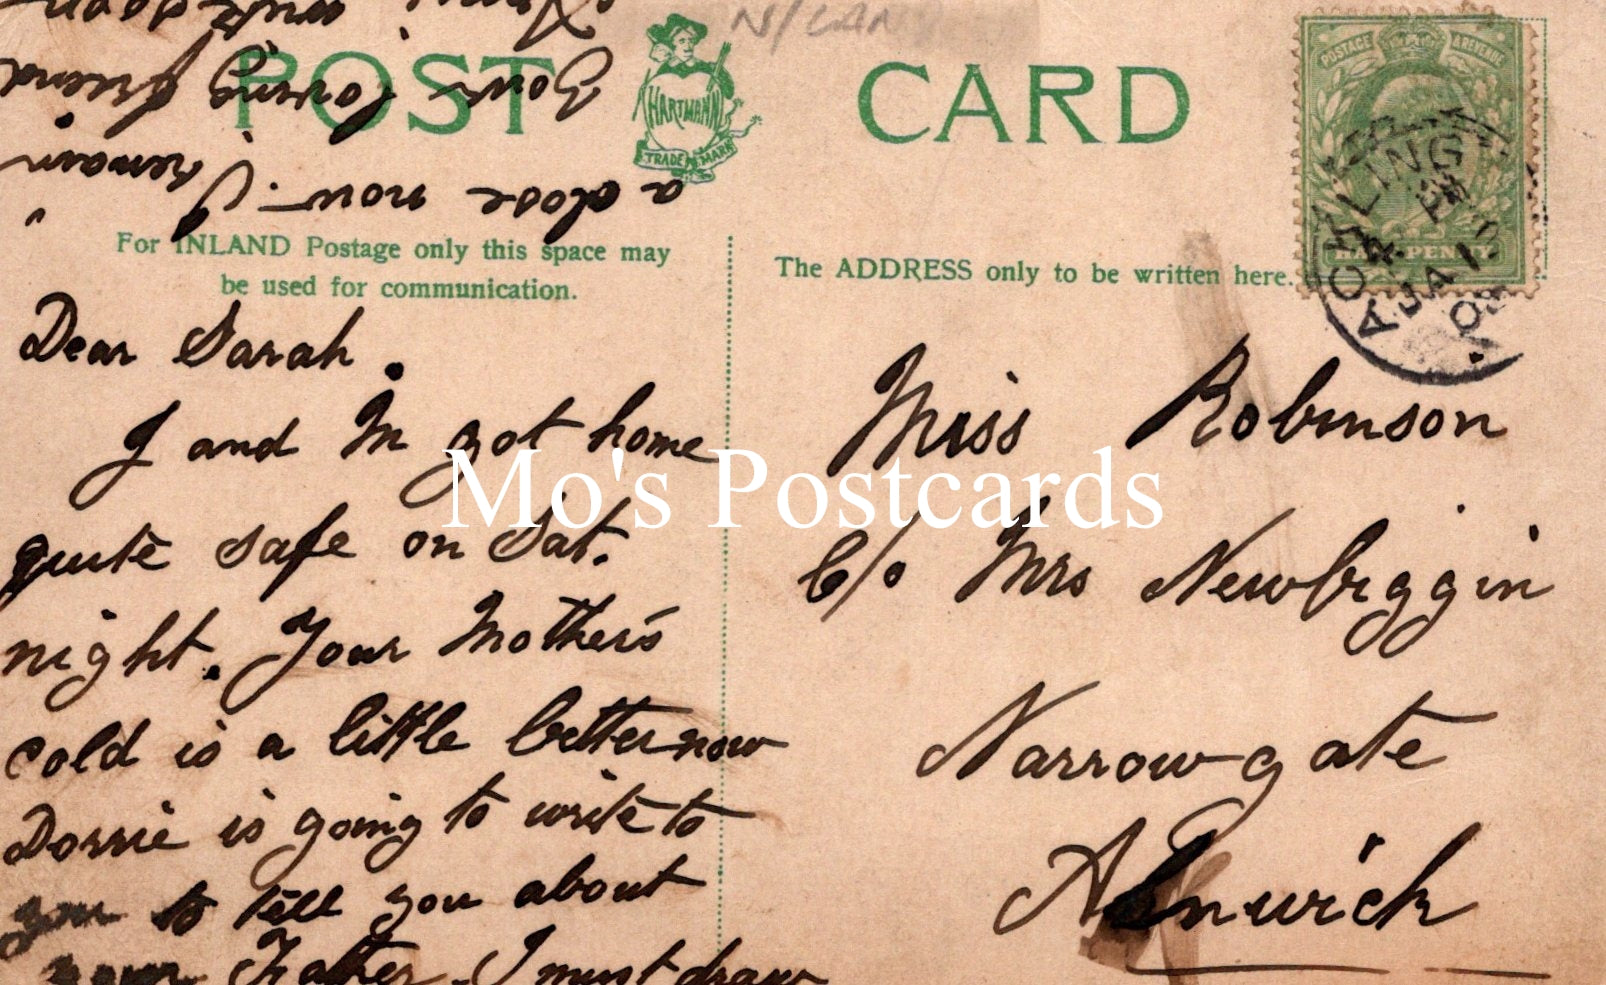 POST CARD
N/LAN
HARTMANN
TRADE MARK
POSTAGE & REVENUE
HALFPENNY
ACKLINGTON
JA 1
09
For INLAND Postage only this space may
be used for communication.
The ADDRESS only to be written here.
Dear Sarah.
I and M got home
quite safe on Sat.
night. Your Mother's
cold is a little better now
Dorrie is going to write to
you to tell you about
your Father. I must draw
a close now. I remain
Your loving friend
write soon
Miss Robinson
C/o Mrs Newbiggin
Narrowgate
Alnwick
Mo's Postcards